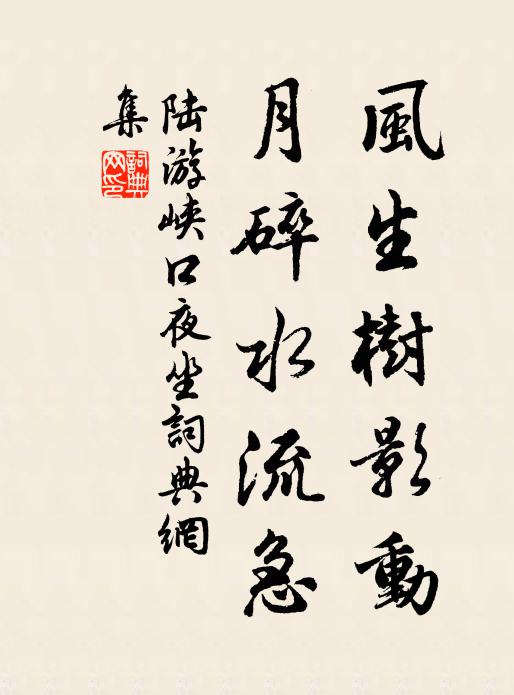 風生樹影動
月碎水流急
陸游峽口夜坐詞典網
集
詞典
网印